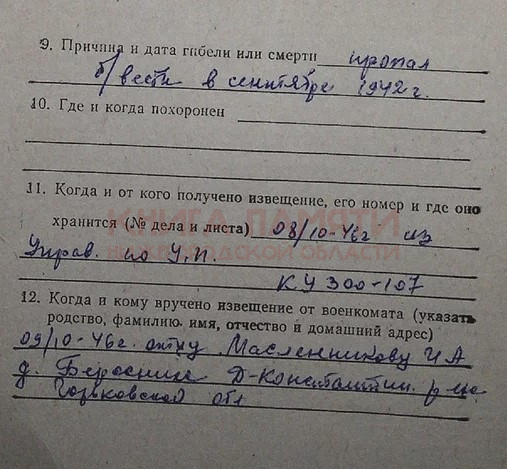 9. Причина и дата гибели или смерти пропал
б/вести в сентябре 1942 г.
10. Где и когда похоронен
11. Когда и от кого получено извещение, его номер и где оно
хранится (№ дела и листа) 08/10-46г из
КНИГА ПАМЯТИ
НИЖЕГОРОДСКОЙ ОБЛАСТИ
Управ. по У.П.
КУ 300-107
12. Когда и кому вручено извещение от военкомата (указать
родство, фамилию, имя, отчество и домашний адрес)
09/10-46г. отцу Масленникову И А
д. Березники Д-Константин. р-на
Горьковской обл